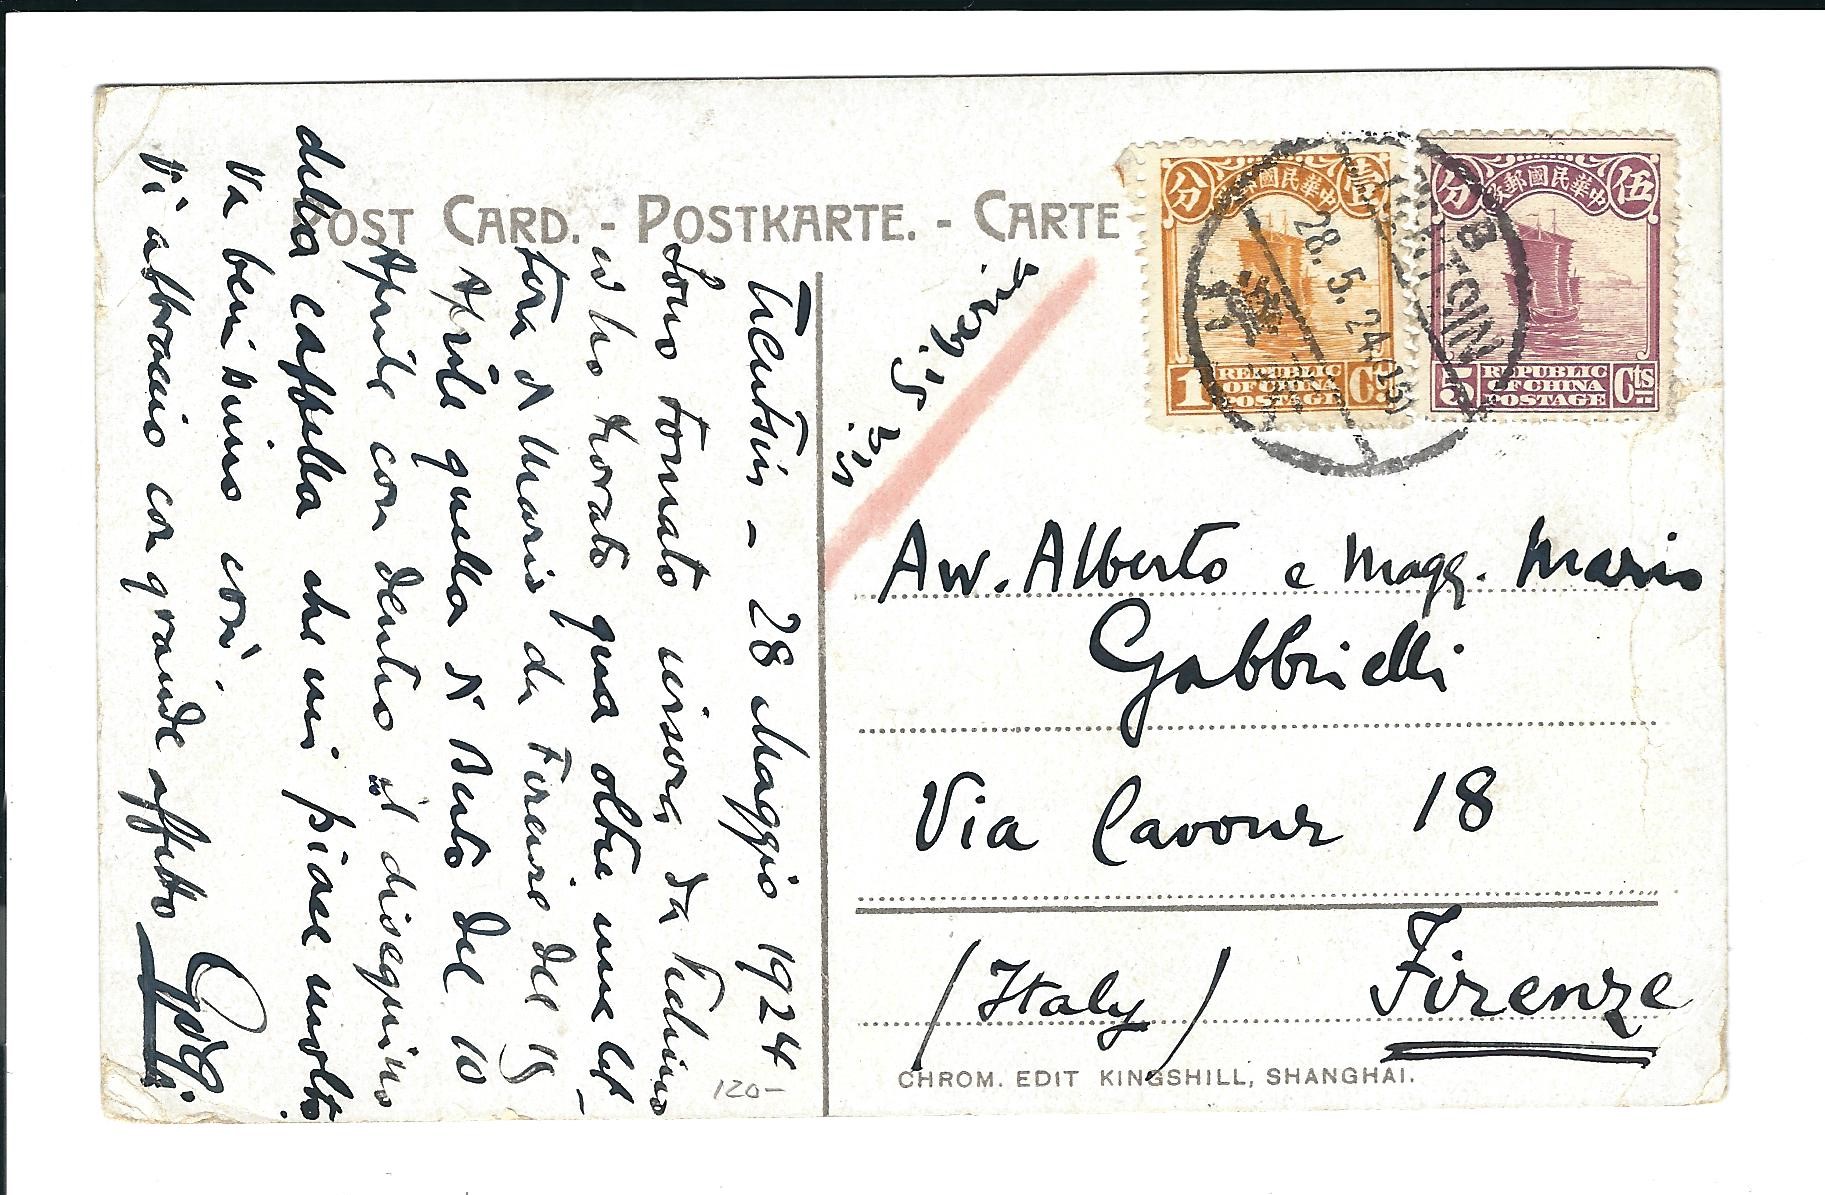 POST CARD. - POSTKARTE. - CARTE
Tientsin - 28 Maggio 1924
Sono tornato stasera da Pechino
ed ho trovato qua oltre una let-
tera di Mario da Firenze del 18
Aprile quella di Berto del 10
Aprile con dentro il disegnino
della cappella che mi piace molto.
Va benissimo così
Vi abbraccio con grande affetto
via Siberia
分 中華民國郵政 壹
1 REPUBLIC OF CHINA POSTAGE Ct
分 中華民國郵政 伍
5 REPUBLIC OF CHINA POSTAGE Cts
TIENTSIN
28.5.24
Avv. Alberto e Magg. Mario
Gabbrielli
Via Cavour 18
(Italy) Firenze
CHROM. EDIT KINGSHILL, SHANGHAI.
120-